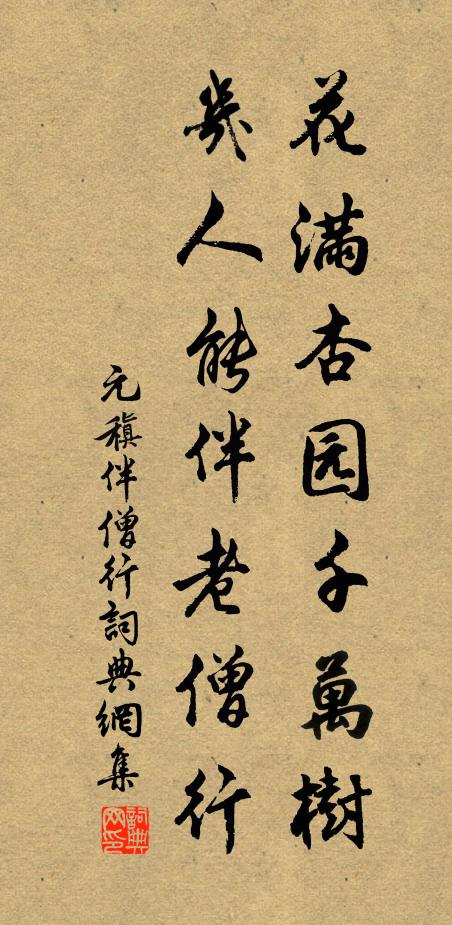 花滿杏园千萬樹
幾人能伴老僧行
元稹伴僧行詞典網集
詞典网印